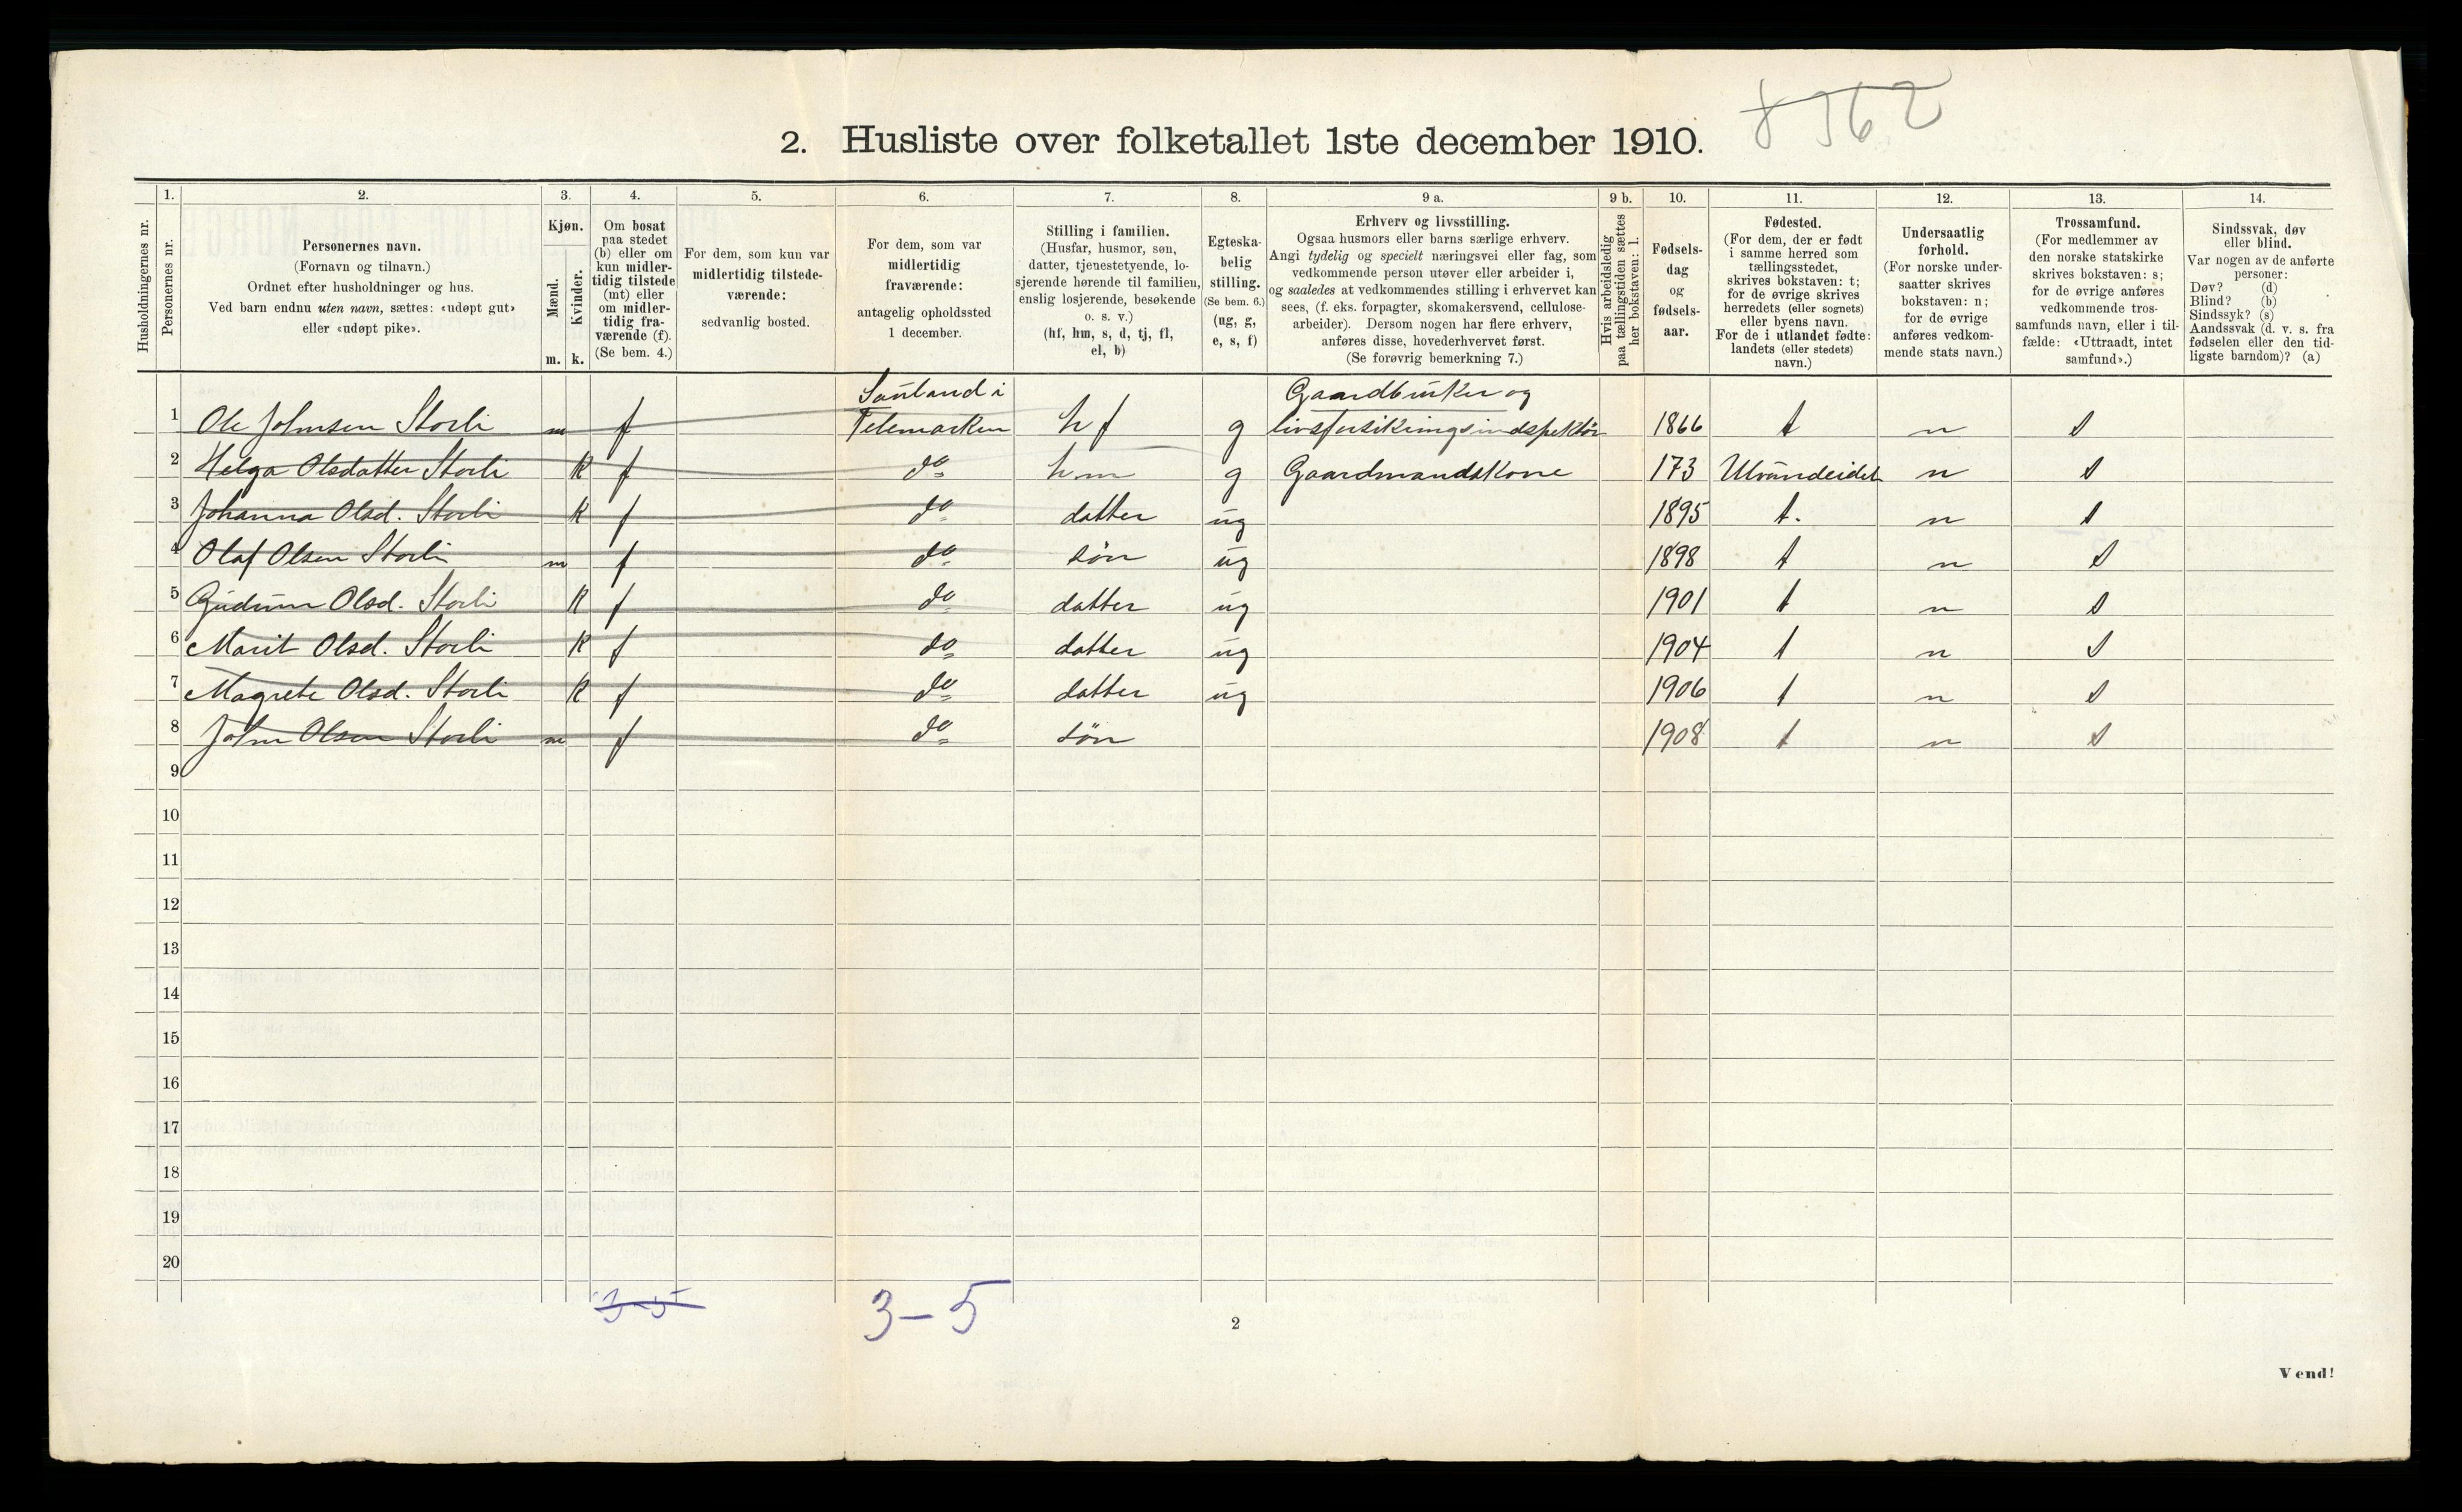 8362
2. Husliste over folketallet 1ste december 1910.
Husholdningernes nr.
1.
Personernes nr.
2.
Personernes navn.
(Fornavn og tilnavn.)
Ordnet efter husholdninger og hus.
Ved barn endnu uten navn, sættes: «udøpt gut»
eller «udøpt pike».
3.
Kjøn.
Mænd.
Kvinder.
m. k.
4.
Om bosat
paa stedet
(b) eller om
kun midler-
tidig tilstede
(mt) eller
om midler-
tidig fra-
værende (f).
(Se bem. 4.)
5.
For dem, som kun var
midlertidig tilstede-
værende:
sedvanlig bosted.
6.
For dem, som var
midlertidig
fraværende:
antagelig opholdssted
1 december.
7.
Stilling i familien.
(Husfar, husmor, søn,
datter, tjenestetyende, lo-
sjerende hørende til familien,
enslig losjerende, besøkende
o. s. v.)
(hf, hm, s, d, tj, fl,
el, b)
8.
Egteska-
belig
stilling.
(Se bem. 6.)
(ug, g,
e, s, f)
9 a.
Erhverv og livsstilling.
Ogsaa husmors eller barns særlige erhverv.
Angi tydelig og specielt næringsvei eller fag, som
vedkommende person utøver eller arbeider i,
og saaledes at vedkommendes stilling i erhvervet kan
sees, (f. eks. forpagter, skomakersvend, cellulose-
arbeider). Dersom nogen har flere erhverv,
anføres disse, hovederhvervet først.
(Se forøvrig bemerkning 7.)
9 b.
Hvis arbeidsledig
paa tællingstiden sættes
her bokstaven: l.
10.
Fødsels-
dag
og
fødsels-
aar.
11.
Fødested.
(For dem, der er født
i samme herred som
tællingsstedet,
skrives bokstaven: t;
for de øvrige skrives
herredets (eller sognets)
eller byens navn.
For de i utlandet fødte:
landets (eller stedets)
navn.)
12.
Undersaatlig
forhold.
(For norske under-
saatter skrives
bokstaven: n;
for de øvrige
anføres vedkom-
mende stats navn.)
13.
Trossamfund.
(For medlemmer av
den norske statskirke
skrives bokstaven: s;
for de øvrige anføres
vedkommende tros-
samfunds navn, eller i til-
fælde: «Uttraadt, intet
samfund».)
14.
Sindssvak, døv
eller blind.
Var nogen av de anførte
personer:
Døv? (d)
Blind? (b)
Sindssyk? (s)
Aandssvak (d. v. s. fra
fødselen eller den tid-
ligste barndom)? (a)
Sauland i Gaardbruker og
1 Ole Johnsen Storli m f Telemarken hf g livsforsikringsindspektør 1866 t n s
2 Helga Olsdatter Storli k f do hm g Gaardmandskone 173 Ulvundeidet n s
3 Johanna Olsd. Storli k f do datter ug 1895 t. n s
4 Olaf Olsen Storli m f do søn ug 1898 t n s
5 Gudrun Olsd. Storli k f do datter ug 1901 t n s
6 Marit Olsd. Storli k f do datter ug 1904 t n s
7 Magrete Olsd. Storli k f do datter ug 1906 t n s
8 John Olsen Storli m f do søn 1908 t n s
9
10
11
12
13
14
15
16
17
18
19
20
3-5 3-5
2
Vend!